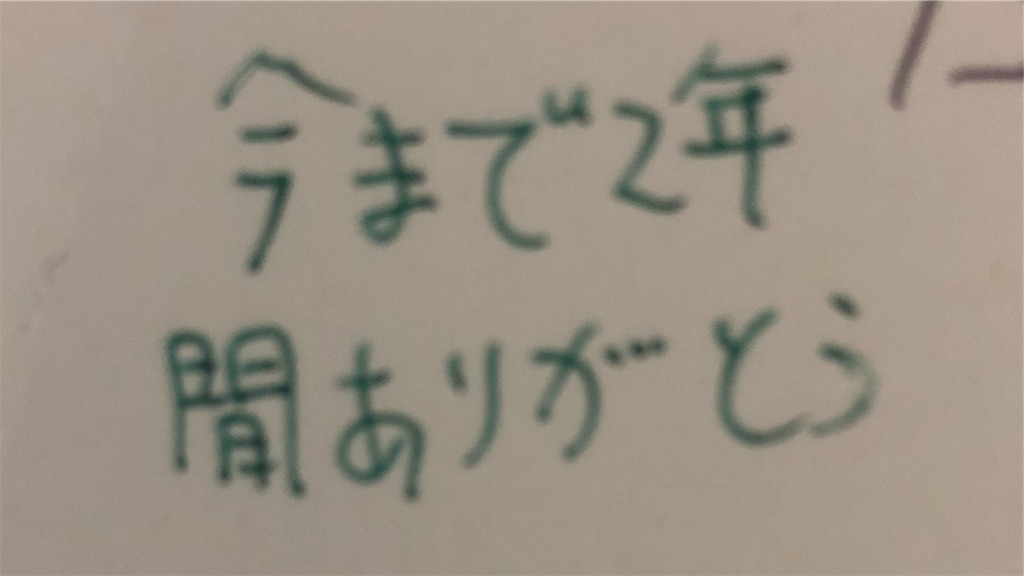 今まで2年
間ありがとう